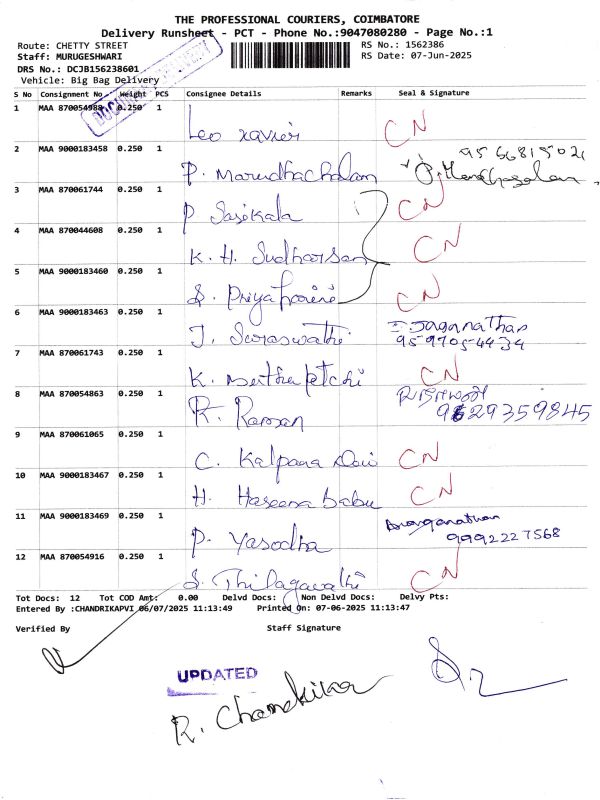 THE PROFESSIONAL COURIERS, COIMBATORE
Delivery Runsheet - PCT - Phone No.:9047080280 - Page No.:1
Route: CHETTY STREET RS No.: 1562386
Staff: MURUGESHWARI RS Date: 07-Jun-2025
DRS No.: DCJB156238601
Vehicle: Big Bag Delivery
S No Consignment No Weight PCS Consignee Details Remarks Seal & Signature
1 MAA 870054988 0.250 1 Leo Xavier CN
2 MAA 9000183458 0.250 1 P. Marudhachalam 9566815021
3 MAA 870061744 0.250 1 P Sasikala CN
4 MAA 870044608 0.250 1 K. H. Sudharsan CN
5 MAA 9000183460 0.250 1 S. Priyaharini CN
6 MAA 9000183463 0.250 1 J. Saraswathi Jaganathan
9597054434
7 MAA 870061743 0.250 1 K. CN
8 MAA 870054863 0.250 1 R. Raman
9629359845
9 MAA 870061065 0.250 1 C. Kalpana Devi CN
10 MAA 9000183467 0.250 1 H. Haseena babu CN
11 MAA 9000183469 0.250 1 P. Yasodha
9992227568
12 MAA 870054916 0.250 1 S. Thilagavathi CN
Tot Docs: 12 Tot COD Amt: 0.00 Delvd Docs: Non Delvd Docs: Delvy Pts:
Entered By :CHANDRIKAPVI 06/07/2025 11:13:49 Printed On: 07-06-2025 11:13:47
Verified By Staff Signature
UPDATED
R. Chandrika